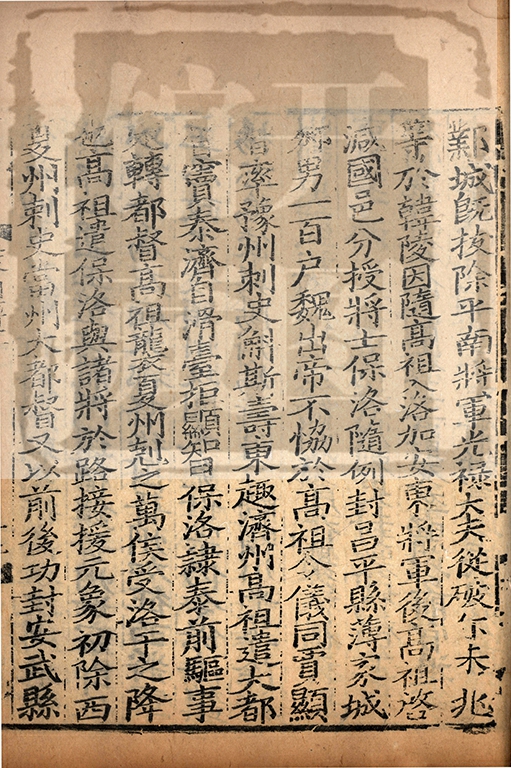 鄴城既拔除平南將軍光祿大夫從破尒朱兆
等於韓陵因隨高祖入洛加安東將軍後高祖啓
減國邑分授將士保洛隨例封昌平縣薄家城
鄉男一百戶魏出帝不協於高祖令儀同賈顯
智率豫州刺史斛斯壽東趣濟州高祖遣大都
督竇泰濟自滑臺拒顯智保洛隷泰前驅事
定轉都督高祖襲夏州剋之萬俟受洛干之降
也高祖遣保洛與諸將於路接援元象初除西
夏州刺史當州大都督又以前後功封安武縣